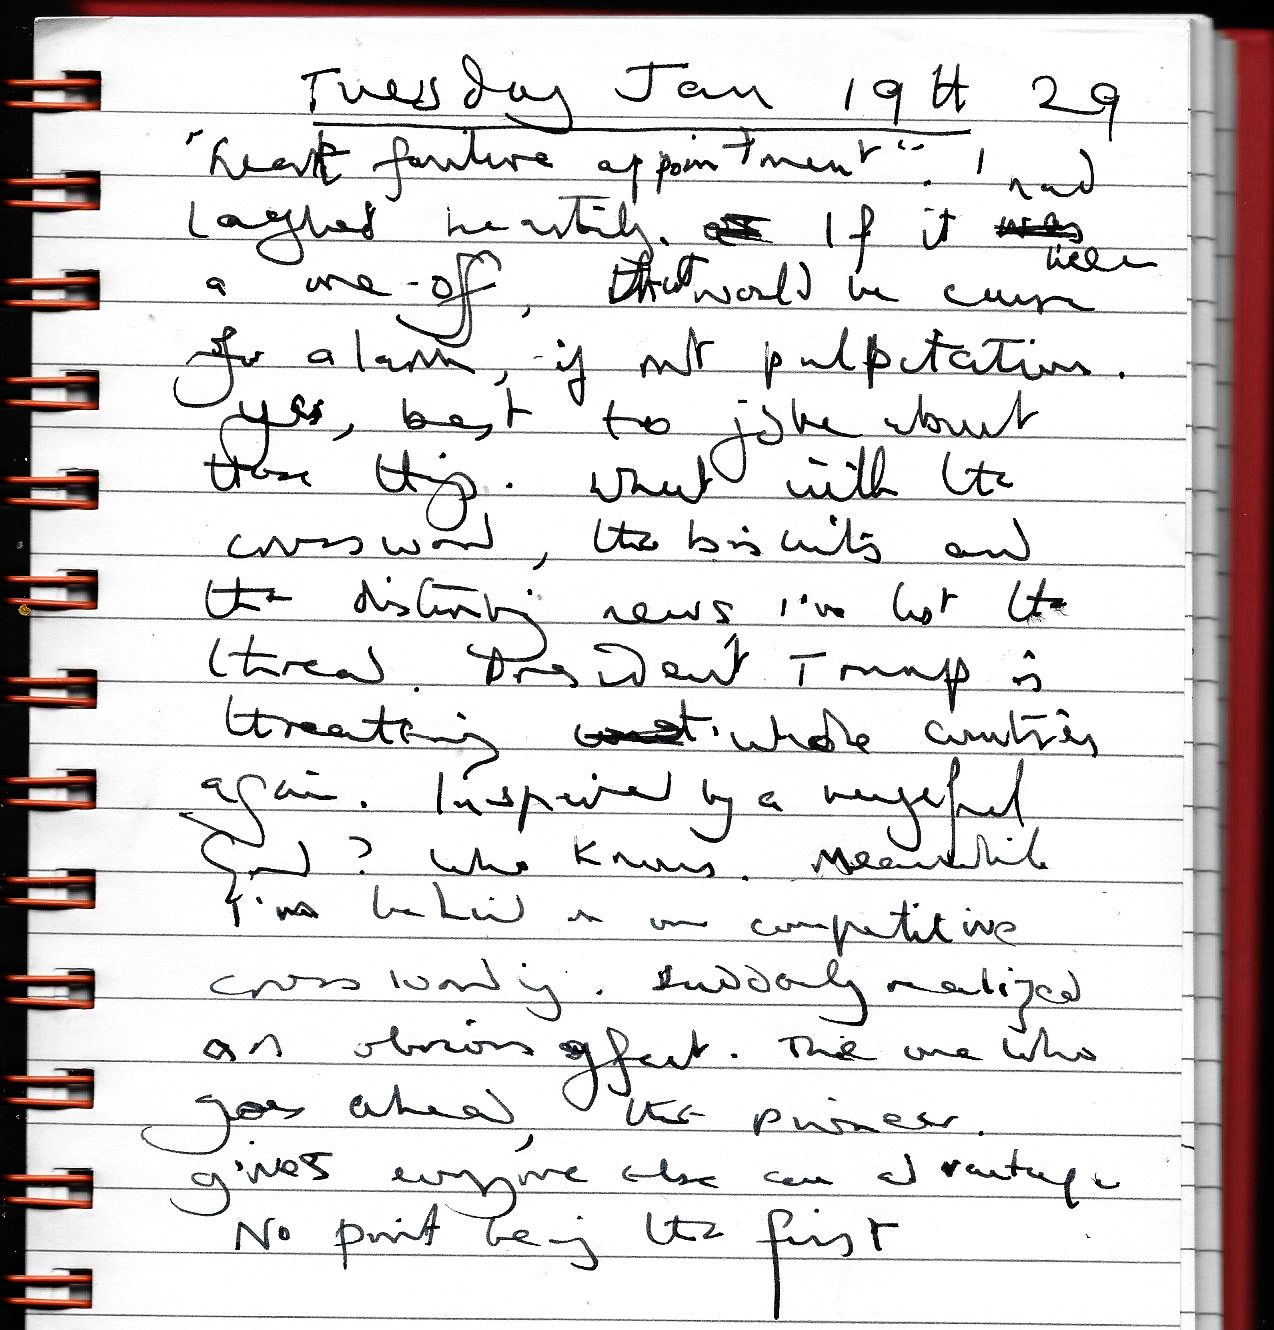 Tuesday Jan 19th 29
"heart failure appointment". I had
laughed heartily. If it
were
a one-off, that would be cause
for alarm, if not pulpitations.
Yes, best to joke about
these things. What with the
crossword, the biscuits and
the disturbing news I've lost the
thread. President Trump is
threatening whole countries
again. Inspired by a vengeful
God? Who knows. Meanwhile
I'm behind in our competitive
crosswording. Suddenly realized
an obvious fact. The one who
goes ahead, the pioneer.
gives everyone else an advantage
No point being the first